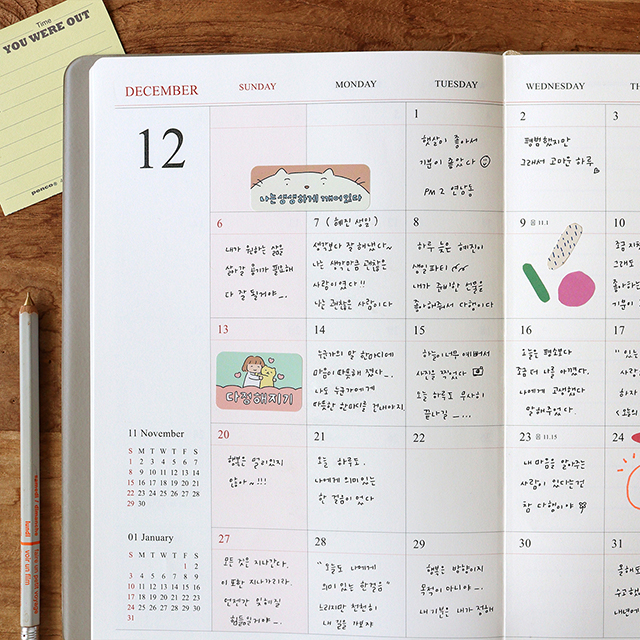 Time
YOU WERE OUT
ponco®
DECEMBER
SUNDAY
MONDAY
TUESDAY
WEDNESDAY
12
1
햇살이 좋아서
기분이 좋았다
PM 2 연남동
2
평범했지만
그래서 고마운 하루
3
나는 생생하게 깨어있다
6
내가 원하는 삶을
살아갈 용기가 필요해
다 잘 될거야
7 (혜진 생일)
생각보다 잘 해냈다~
나는 생각만큼 괜찮은
사람이였다!!
나는 괜찮은 사람이다
8
하루 늦은 혜진이
생일 파티
내가 준비한 선물을
좋아해줘서 다행이다
9 음 11.1
10
13
다정해지기
14
누군가의 말 한마디에
마음이 따뜻해 졌다
나도 누군가에게
따뜻한 한마디를 건네야지
15
하늘이 너무 예뻐서
사진을 찍었다
오늘 하루도 무사히
끝나길
16
오늘은 평소보다
좀 더 나를 아꼈다.
나에게 고생했다
말해주었다.
17
11 November
S M T W T F S
1 2 3 4 5 6 7
8 9 10 11 12 13 14
15 16 17 18 19 20 21
22 23 24 25 26 27 28
29 30
20
행복은 멀리있지
않아~!!!
21
오늘 하루도,
나에게 의미있는
한 걸음이 었다
22
23 음 11.15
내 마음을 알아주는
사람이 있다는건
참 다행이야
24
01 January
S M T W T F S
1 2
3 4 5 6 7 8 9
10 11 12 13 14 15 16
17 18 19 20 21 22 23
24 25 26 27 28 29 30
31
27
모든 것은 지나간다.
이 또한 지나가리라.
언젠간 잊혀질
힘들일거야
28
"오늘도 나에게
의미 있는 한걸음"
느리지만 천천히
내 길을 가보자
29
행복은 방향이지
목적이 아니야
내 기분은 내가 정해
30
31